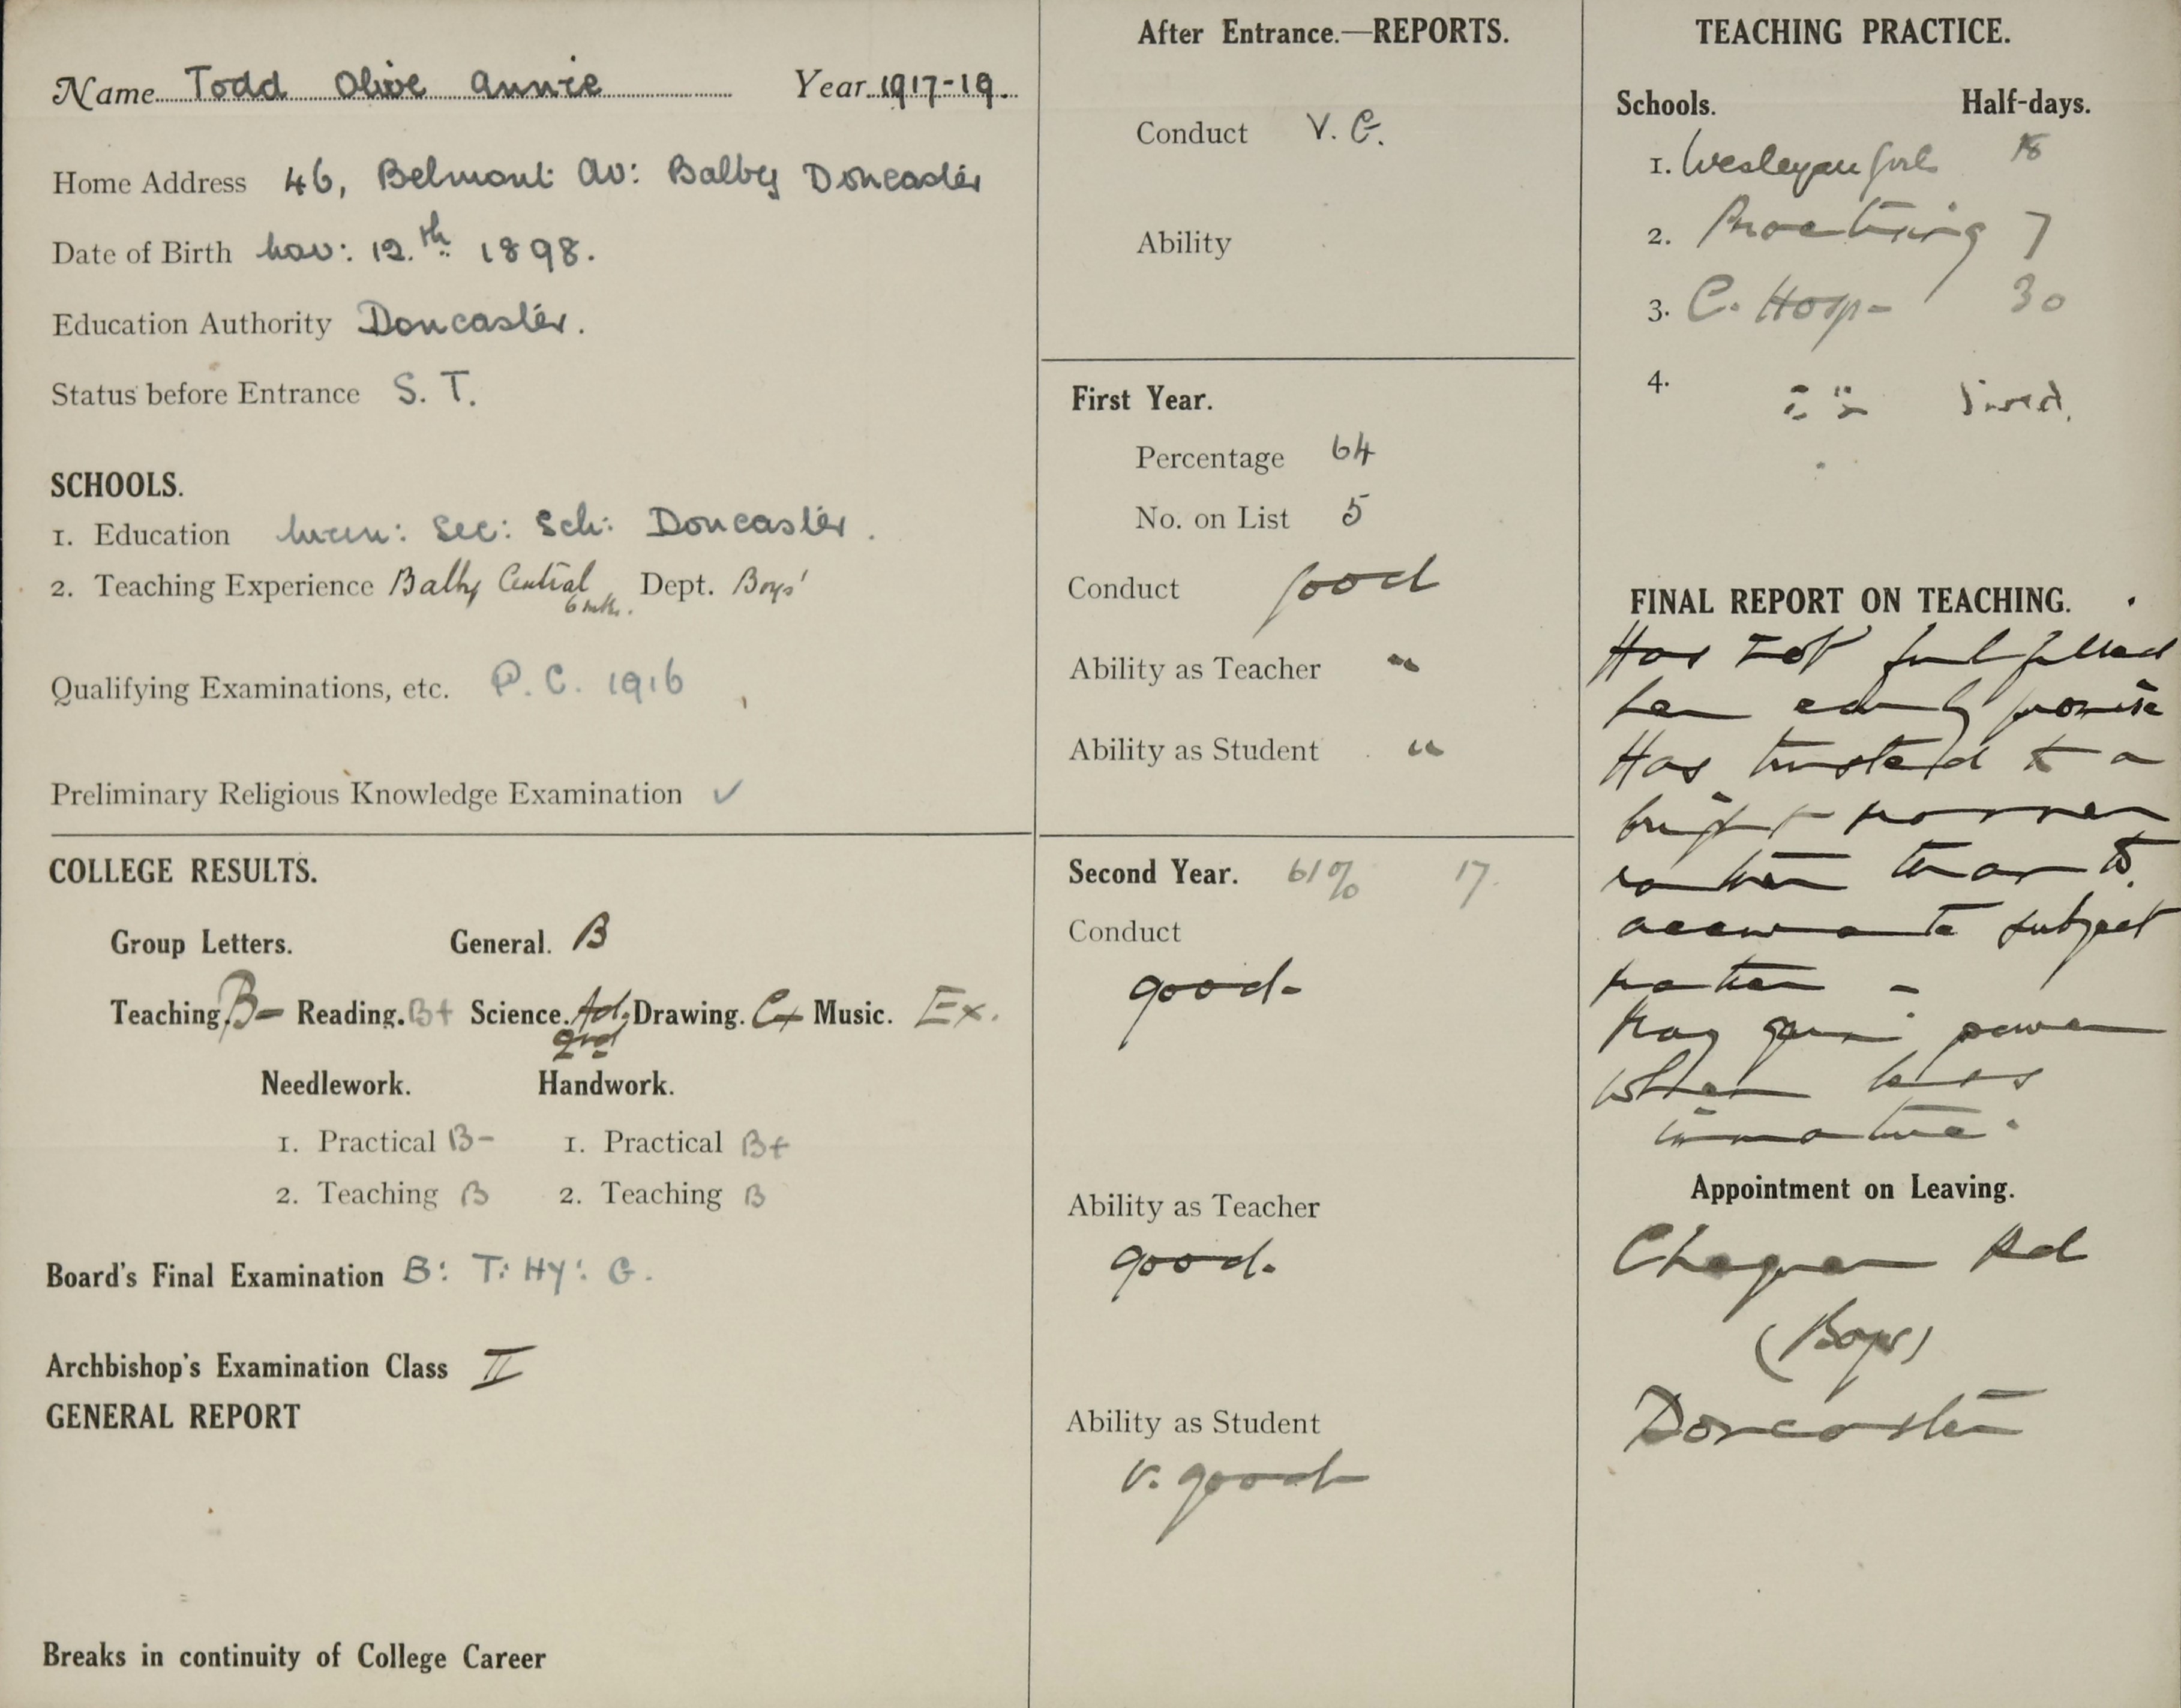 Name Todd Olive Annie Year 1917-19.
Home Address 46, Belmont Av: Balby Doncaster
Date of Birth Nov: 12.th 1898.
Education Authority Doncaster.
Status before Entrance S. T.
SCHOOLS.
1. Education Mun: Sec: Sch: Doncaster.
2. Teaching Experience Balby Central 6 mths. Dept. Boys'
Qualifying Examinations, etc. P. C. 1916
Preliminary Religious Knowledge Examination ✓
COLLEGE RESULTS.
Group Letters. General. B
Teaching. B- Reading. B+ Science. Ad. Drawing. C+ Music. Ex.
2nd
Needlework. Handwork.
1. Practical B- 1. Practical B+
2. Teaching B 2. Teaching B
Board's Final Examination B: T: Hy: G.
Archbishop's Examination Class II
GENERAL REPORT
Breaks in continuity of College Career
After Entrance.—REPORTS.
Conduct V. G.
Ability
First Year.
Percentage 64
No. on List 5
Conduct good
Ability as Teacher "
Ability as Student "
Second Year. 61% 17.
Conduct
good.
Ability as Teacher
good.
Ability as Student
v. good
TEACHING PRACTICE.
Schools. Half-days.
1. Wesleyan Girls 18
2. Practising 7
3. C. Hosp- 30
4.
FINAL REPORT ON TEACHING.
Has not fulfilled
her early promise
Has trusted to a
bright manner
rather than to
accurate subject
matter -
May gain power
when less
immature.
Appointment on Leaving.
Rd
(Boys)
Doncaster